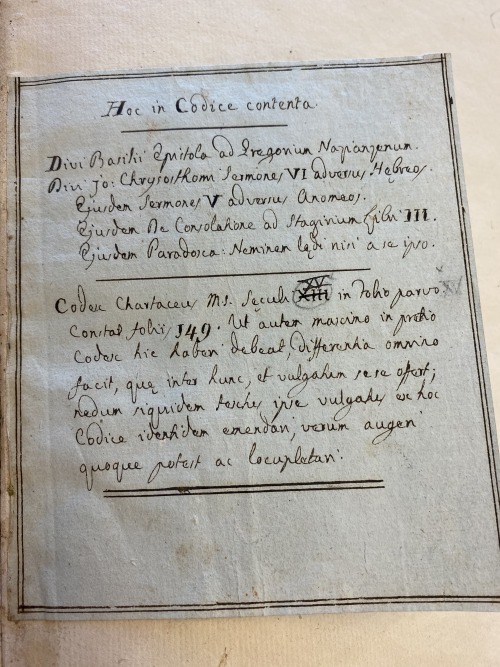 Hoc in Codice contenta.
Divi Basilii Epistola ad Gregorium Nazianzenum.
Divi Jo: Chrysosthomi Sermones VI adversus Hebreos.
Ejusdem Sermones V adversus Anomeos.
Ejusdem De Consolatione ad Stagirium Libri III.
Ejusdem Paradoxa: Neminem lędi nisi a se ipso.
Codex Chartaceus Ms. Seculi XV in Folio parvo. XV
Constat foliis 149. Ut autem maximo in pretio
Codex hic haberi debeat, differentia omnino
facit, quę inter hunc, et vulgatum se se offert;
nedum siquidem textus ipse vulgatus ex hoc
Codice identidem emendari, verum augeri
quoque potest ac locupletari.